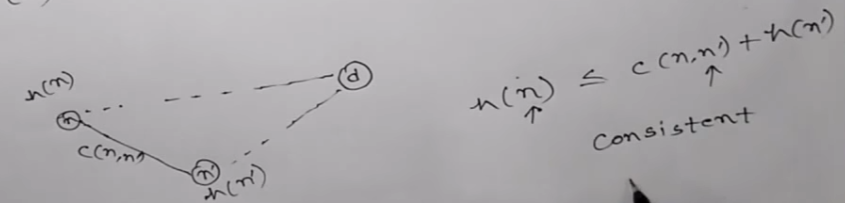 h(n)
n
d
c(n,n')
n'
h(n')
h(n) ≤ c(n,n') + h(n')
consistent